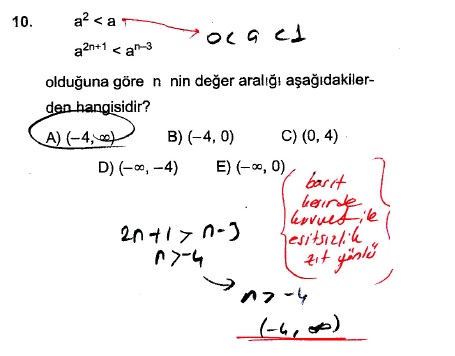 10. a² < a
0 < a < 1
a²ⁿ⁺¹ < aⁿ⁻³
olduğuna göre n nin değer aralığı aşağıdakiler-
den hangisidir?
A) (−4, ∞) B) (−4, 0) C) (0, 4)
D) (−∞, −4) E) (−∞, 0)
basit
kesirde
kuvvet ile
eşitsizlik
zıt yönlü
2n+1 > n-3
n > -4
n > -4
(-4, ∞)